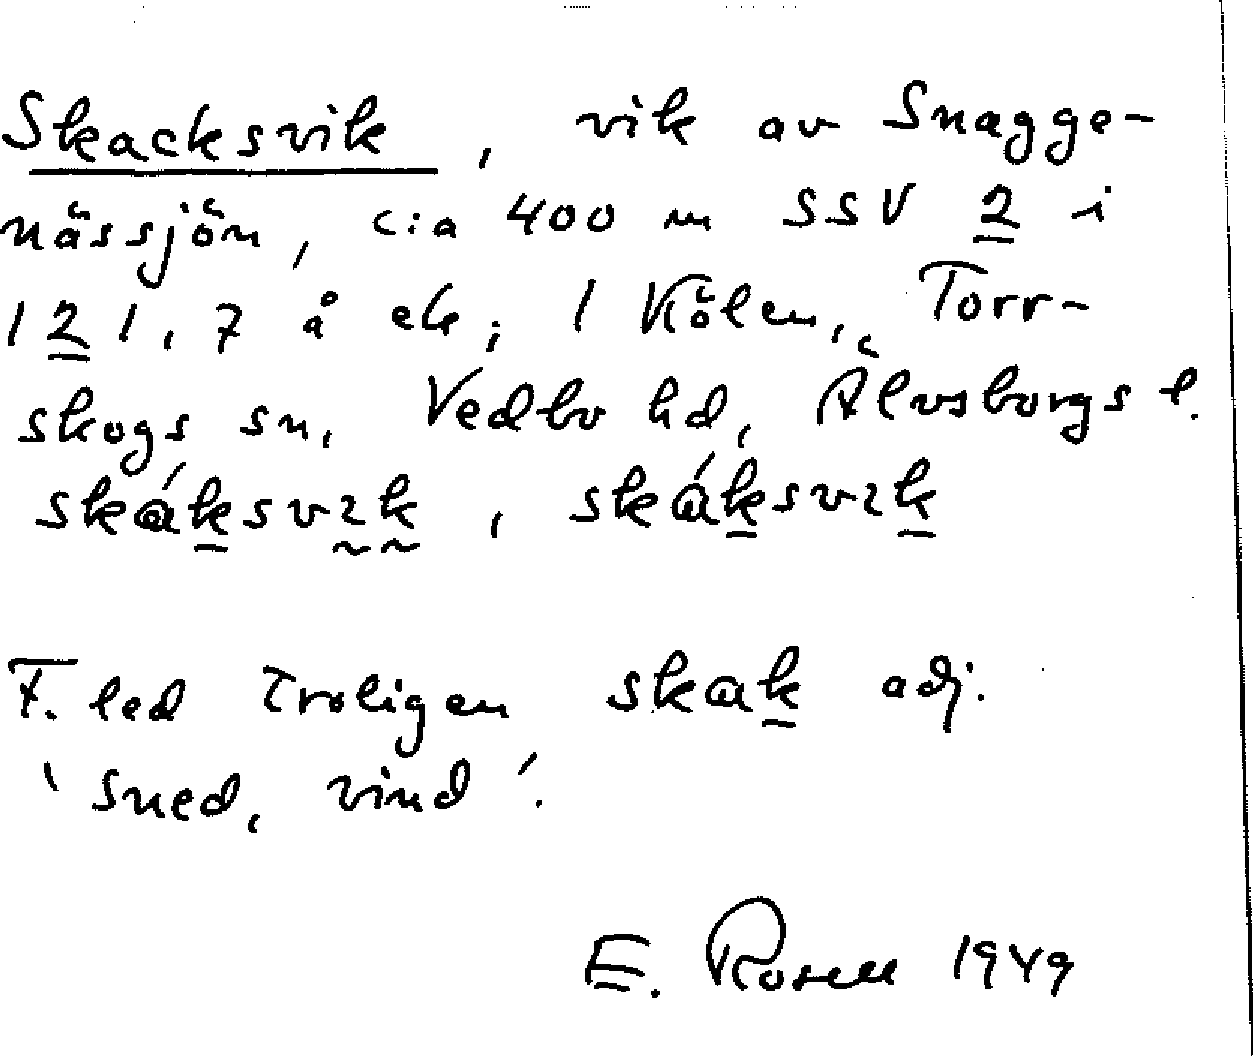 Skacksvik, vik av Snagge-
nässjön, c:a 400 m SSV 2 i
121,7 å ek; 1 Kölen, Torr-
skogs sn, Vedbo hd, Älvsborgs l.
skáksvɩk, skáksvɩk
F. led troligen skak adj.
'sned, vind'.
E. Rosell 1949